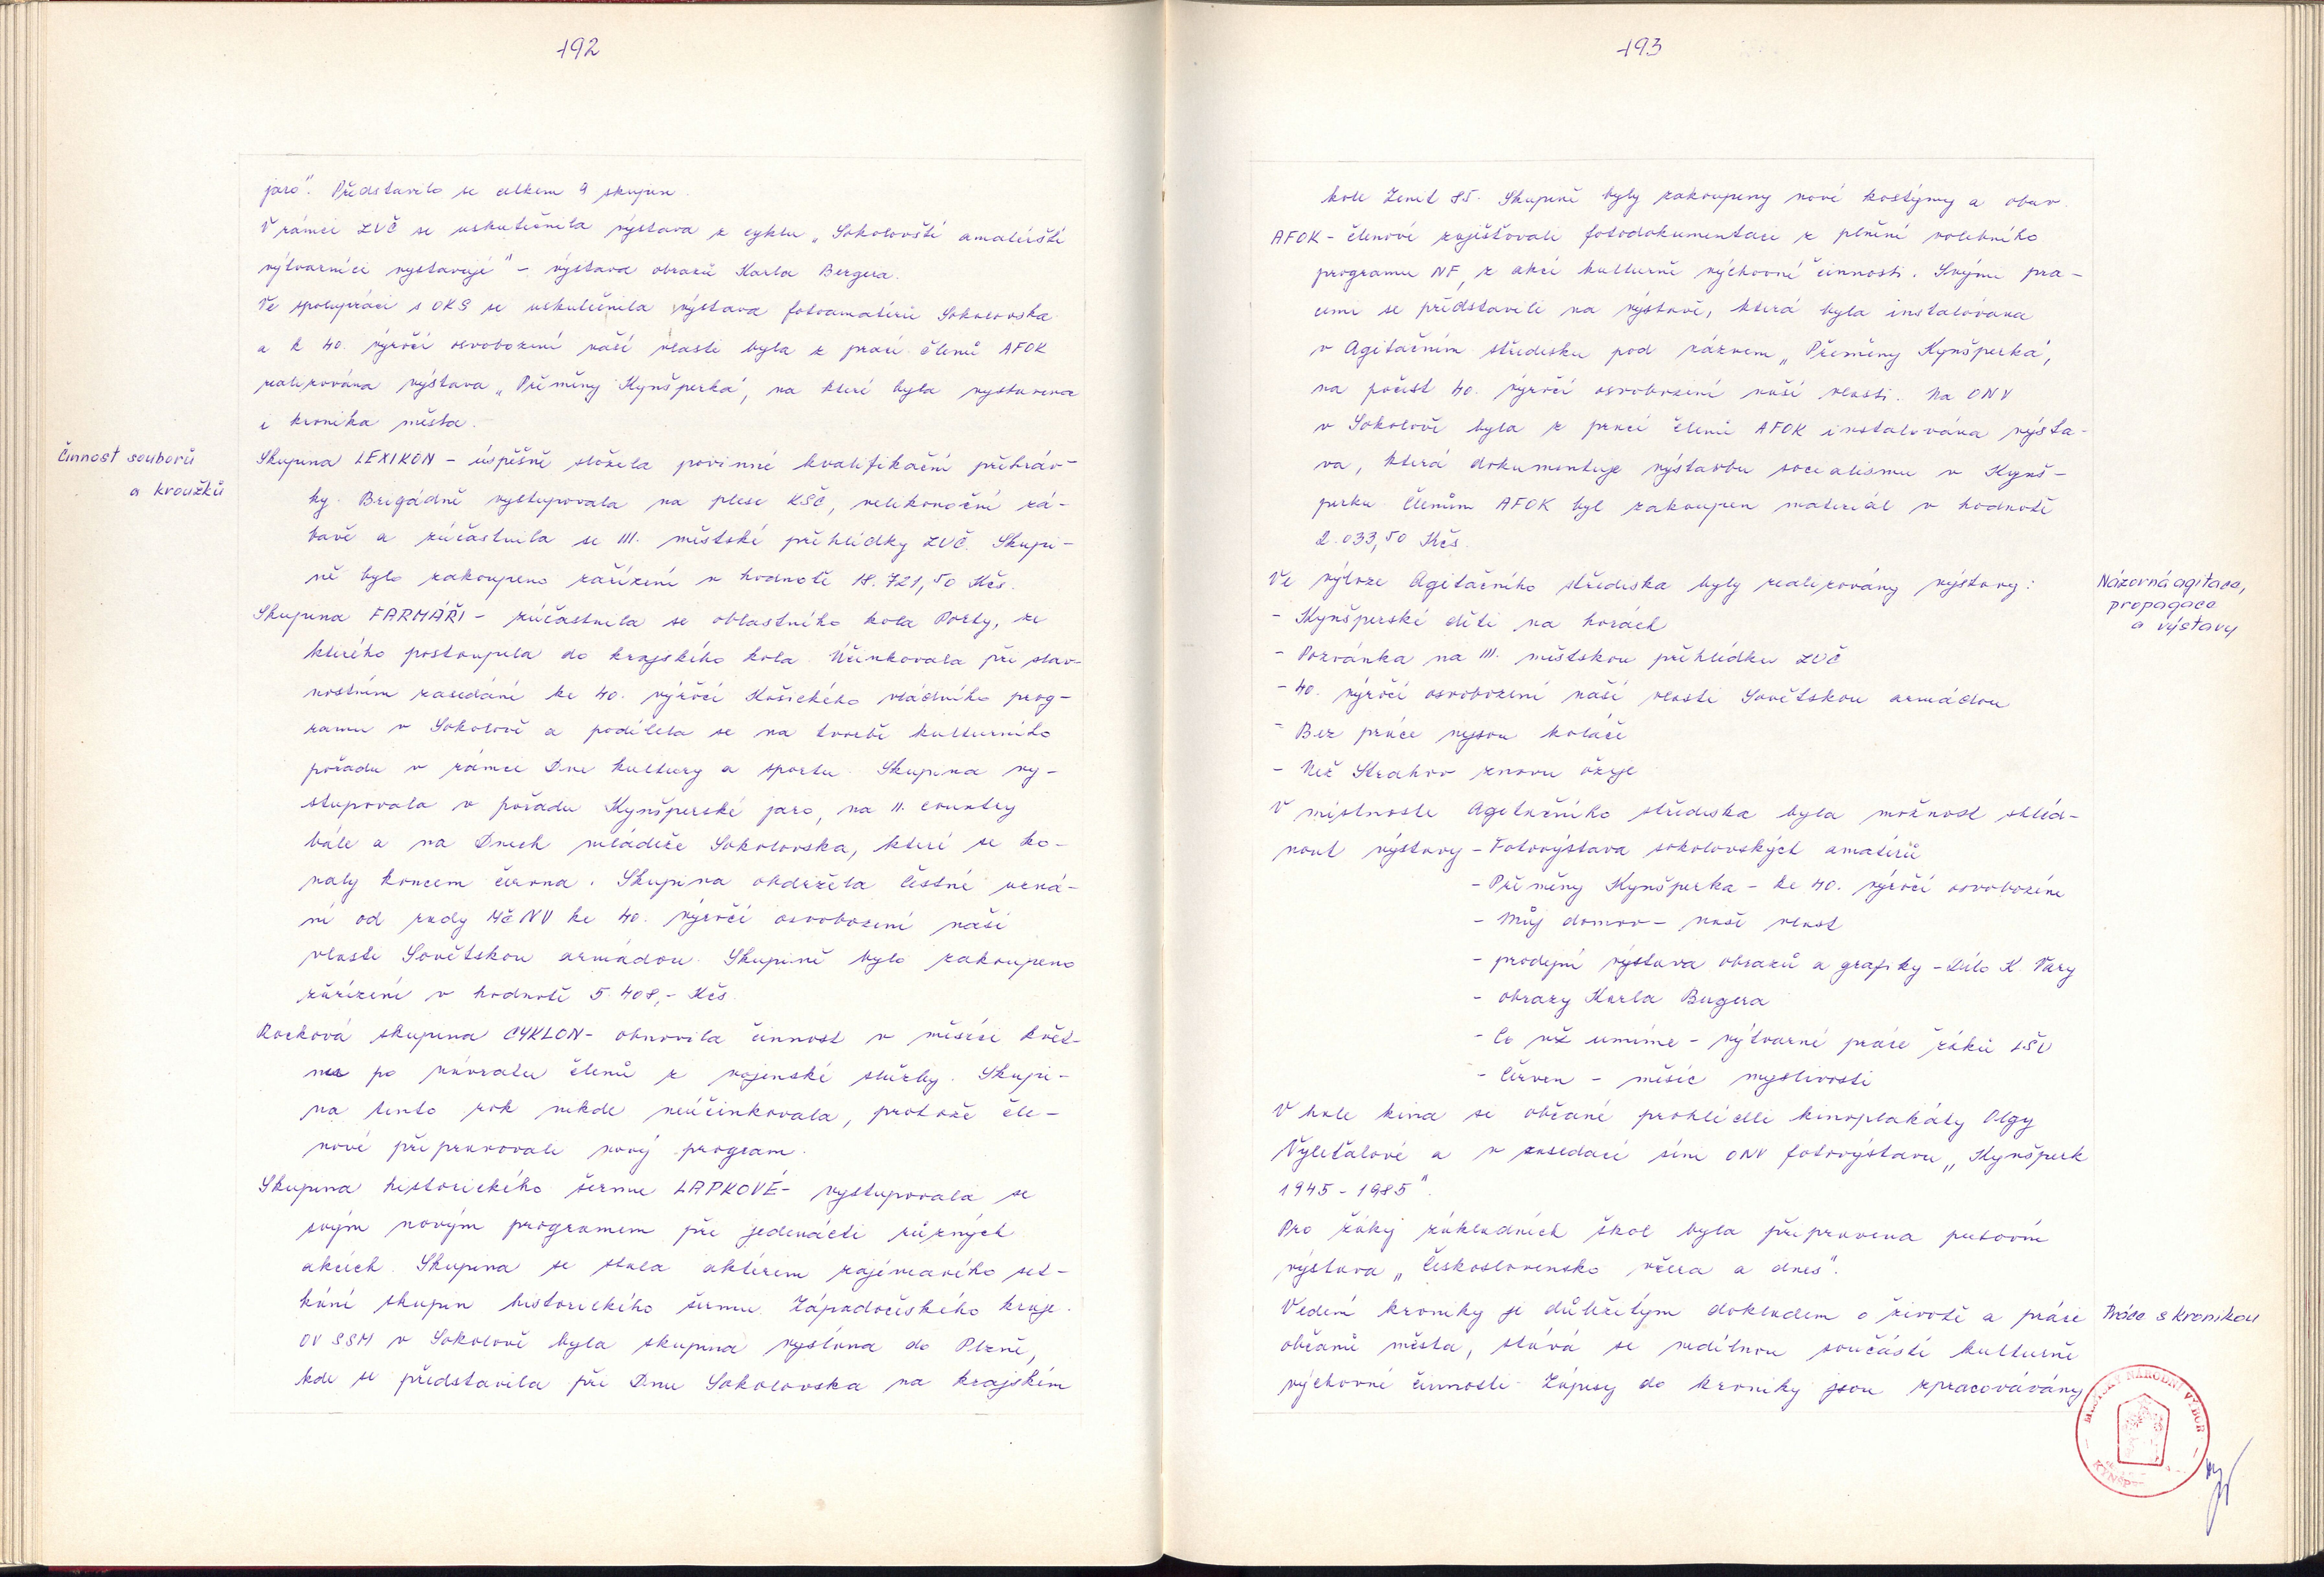 192
jaro". Představilo se celkem 9 skupin.
V rámci ZUČ se uskutečnila výstava z cyklu „Sokolovští amatérští
výtvarníci vystavují" – výstava obrazů Karla Bergera.
Ve spolupráci s OKS se uskutečnila výstava fotoamatérů Sokolovska
a k 40. výročí osvobození naší vlasti byla z prací členů AFOK
realizována výstava „Přeměny Kynšperka", na které byla vystavena
i kronika města.
Činnost souborů
a kroužků
Skupina LEXIKON – úspěšně složila povinné kvalifikační přehráv-
ky. Brigádně vystupovala na plese KSČ, velikonoční zá-
bavě a zúčastnila se III. městské přehlídky ZUČ. Skupi-
ně bylo zakoupeno zařízení v hodnotě 18.721,50 Kčs.
Skupina FARMÁŘI – zúčastnila se oblastního kola Porty, ze
kterého postoupila do krajského kola. Účinkovala při slav-
nostním zasedání ke 40. výročí Košického vládního prog-
ramu v Sokolově a podílela se na tvorbě kulturního
pořadu v rámci Dne kultury a sportu. Skupina vy-
stupovala v pořadu Kynšperské jaro, na II. country
bále a na Dnech mládeže Sokolovska, které se ko-
naly koncem června. Skupina obdržela čestné uzná-
ní od rady MěNV ke 40. výročí osvobození naší
vlasti Sovětskou armádou. Skupině bylo zakoupeno
zařízení v hodnotě 5.408,- Kčs.
Rocková skupina CYKLON – obnovila činnost v měsíci květ-
nu po návratu členů z vojenské služby. Skupi-
na tento rok nikde neúčinkovala, protože čle-
nové připravovali nový program.
Skupina historického šermu LAPKOVÉ – vystupovala se
svým novým programem při jedenácti různých
akcích. Skupina se stala aktérem zajímavého set-
kání skupin historického šermu Západočeského kraje.
OV SSM v Sokolově byla skupina vyslána do Plzně,
kde se představila při Dnu Sokolovska na krajském
193
kole Zenit 85. Skupině byly zakoupeny nové kostýmy a obuv.
AFOK – členové zajišťovali fotodokumentaci z plnění volebního
programu NF, z akcí kulturně výchovné činnosti. Svými pra-
cemi se představili na výstavě, která byla instalována
v Agitačním středisku pod názvem „Přeměny Kynšperka",
na počest 40. výročí osvobození naší vlasti. Na ONV
v Sokolově byla z prací členů AFOK instalována výsta-
va, která dokumentuje výstavbu socialismu v Kynš-
perku. Členům AFOK byl zakoupen materiál v hodnotě
2.033,50 Kčs.
Ve výloze Agitačního střediska byly realizovány výstavy:
Názorná agitace,
propagace
a výstavy
- Kynšperské děti na horách
- Pozvánka na III. městskou přehlídku ZUČ
- 40. výročí osvobození naší vlasti Sovětskou armádou
- Bez práce nejsou koláče
- Než Strahov znovu ožije
V místnosti Agitačního střediska byla možnost shléd-
nout výstavy – Fotovýstava sokolovských amatérů
- Přeměny Kynšperka – ke 40. výročí osvobození
- Můj domov – naše vlast
- prodejní výstava obrazů a grafiky – Dílo K. Vary
- obrazy Karla Bergera
- Co už umíme – výtvarné práce žáků LŠU
- Červen – měsíc myslivosti
V hale kina si občané prohlédli kinoplakáty Olgy
Vyleťalové a v zasedací síni ONV fotovýstavu „Kynšperk
1945 – 1985".
Pro žáky základních škol byla připravena putovní
výstava „Československo včera a dnes".
Vedení kroniky je důležitým dokladem o životě a práci
Práce s kronikou
občanů města, stává se nedílnou součástí kulturně
výchovné činnosti. Zápisy do kroniky jsou zpracovávány
MĚSTSKÝ NÁRODNÍ VÝBOR